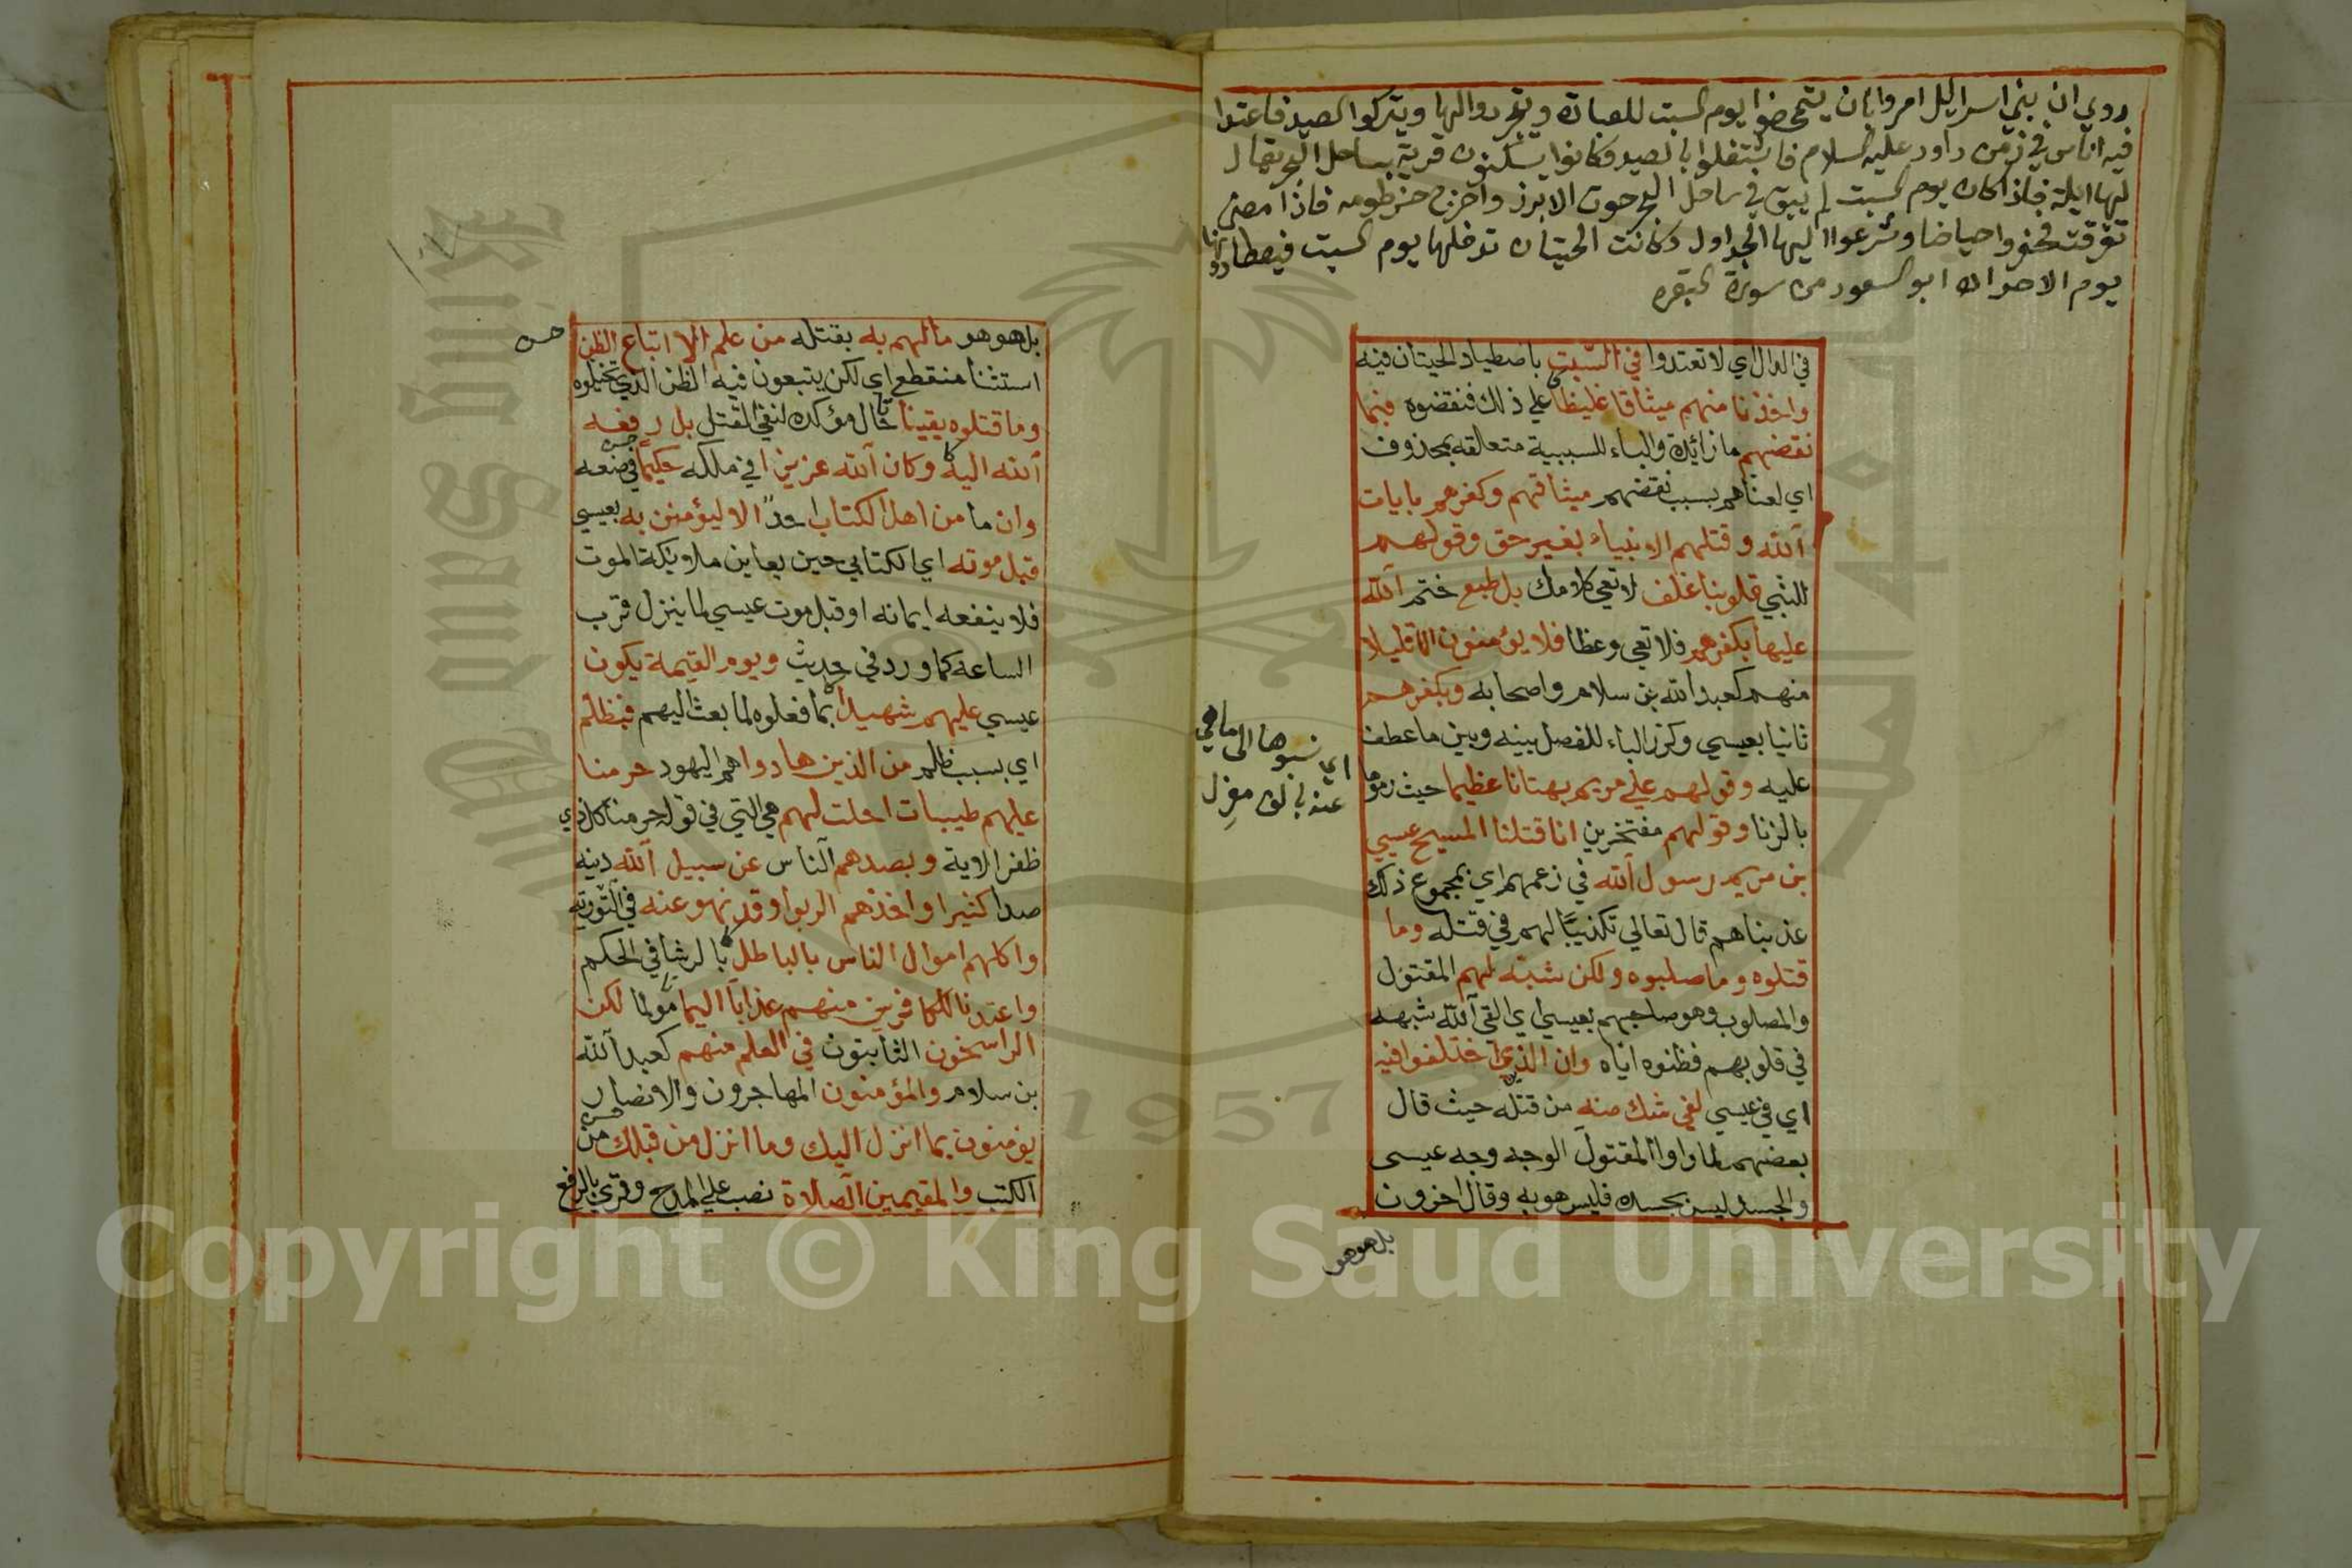 روي ان بني اسرائيل امروا بان يتمحضوا يوم السبت للعبادة ويتجردوا لها ويتركوا الصيد فاعتدا
فيه اناس في زمن داود عليه السلام فاشتغلوا بالصيد وكانوا يسكنون قرية بساحل البحر يقال
لها ايلة فاذا كان يوم السبت لم يبق في ساحل البحر حوت الا برز واخرج خرطومه فاذا مضى
تفرقت فحفروا حياضا وشرعوا اليها الجداول وكانت الحيتان تدخلها يوم السبت فيصطادونها
يوم الاحد ابو السعود من سورة البقره
في الدال اي لا تعتدوا في السبت باصطياد الحيتان فيه
واخذنا منهم ميثاقا غليظا على ذلك فنقضوه فبما
نقضهم ما زائدة والباء للسببية متعلقة بمحذوف
اي لعناهم بسبب نقضهم ميثاقهم وكفرهم بايات
الله وقتلهم الانبياء بغير حق وقولهم
للنبي قلوبنا غلف لا تعي كلامك بل طبع ختم الله
عليها بكفرهم فلا تعي وعظا فلا يؤمنون الا قليلا
منهم كعبد الله بن سلام واصحابه وبكفرهم
ثانيا بعيسي وكرر الباء للفصل بينه وبين ما عطف
عليه وقولهم علي مريم بهتانا عظيما حيث رموها
بالزنا وقولهم مفتخرين انا قتلنا المسيح عيسي
بن مريم رسول الله في زعمهم اي بمجموع ذلك
عذبناهم قال تعالي تكذيبا لهم في قتله وما
قتلوه وما صلبوه ولكن شبه لهم المقتول
والمصلوب وهو صاحبهم بعيسي اي القي الله شبهه
في قلوبهم فظنوه اياه وان الذين اختلفوا فيه
اي في عيسي لفي شك منه من قتله حيث قال
بعضهم لما راوا المقتول الوجه وجه عيسى
والجسد ليس بجسده فليس هو به وقال اخرون
اي نسبوها الى ما هي
عنه بالف معزل
بل هو هو
بل هو هو ما لهم به بقتله من علم الا اتباع الظن
استثنا منقطع اي لكن يتبعون فيه الظن الذي تخيلوه
وما قتلوه يقينا حال مؤكدة لنفي القتل بل رفعه
الله اليه وكان الله عزيزا في ملكه حكيما في صنعه
وان ما من اهل الكتاب احد الا ليؤمنن به بعيسي
قبل موته اي الكتابي حين يعاين ملايكة الموت
فلا ينفعه ايمانه او قبل موت عيسي لما ينزل قرب
الساعه كما ورد في حديث ويوم القيمة يكون
عيسي عليهم شهيدا بما فعلوه لما بعث اليهم فبظلم
اي بسبب ظلم من الذين هادوا هم اليهود حرمنا
عليهم طيبات احلت لهم هي التي في قوله حرمنا كل ذي
ظفر الاية وبصدهم الناس عن سبيل الله دينه
صدا كثيرا واخذهم الربوا وقد نهو عنه في التورية
واكلهم اموال الناس بالباطل بالرشا في الحكم
واعتدنا للكافرين منهم عذابا اليما مولما لكن
الراسخون الثابتون في العلم منهم كعبد الله
بن سلام والمؤمنون المهاجرون والانصار
يؤمنون بما انزل اليك وما انزل من قبلك من
الكتب والمقيمين الصلاة نصب علي المدح وقري بالرفع
1957
Copyright © King Saud University